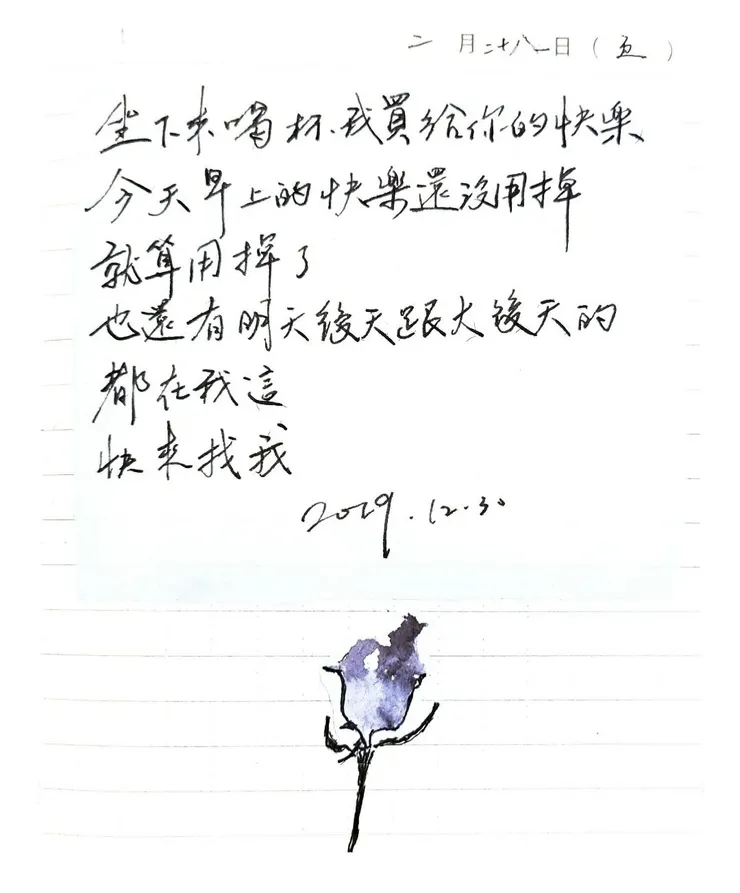 二月二十八日（五）
坐下來喝杯我買給你的快樂
今天早上的快樂還沒用掉
就算用掉了
也還有明天後天跟大後天的
都在我這
快來找我
2019.12.30